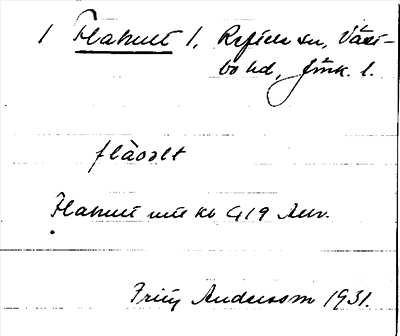 1 Flahult 1. Reftele sn, Väst-
bo hd, Jönk. l.
flàoolt
Flahult utt kb 419 Avr.
Fritz Andersson 1931.